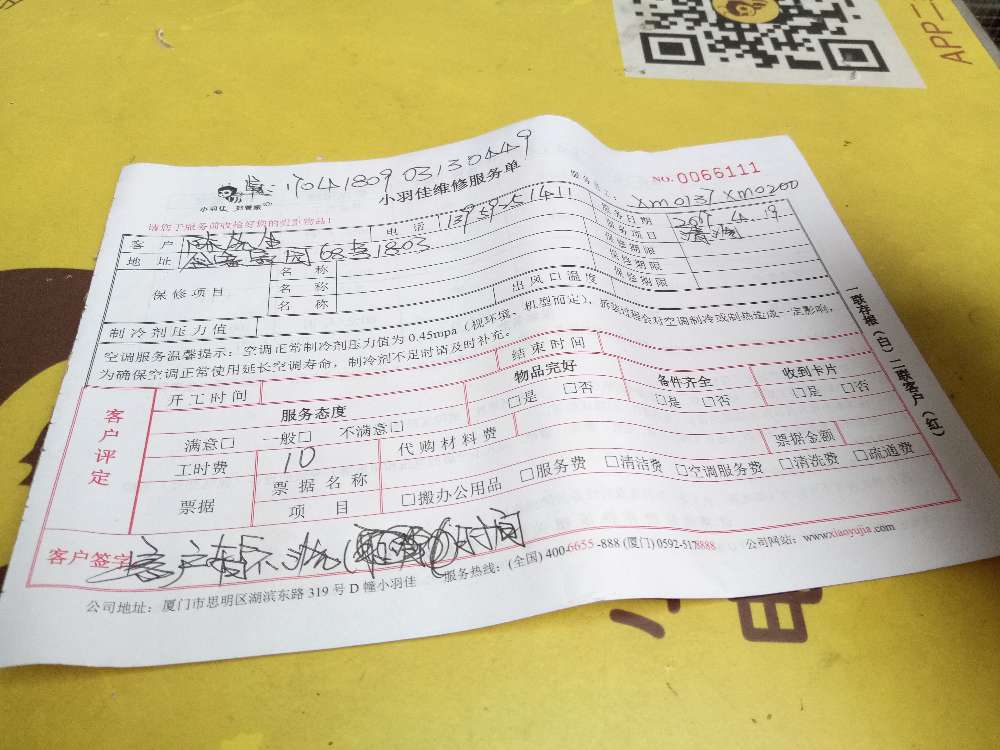 APP二
1704180903130449
小羽佳维修服务单
NO.0066111
小羽佳 好管家
XM0137 XM0200
请您于服务前收拾好您的贵重物品！
客户 电话 服务日期 2017.4.19
地址 68号1803 服务项目 清洗
保修项目 名称 保修期限
名称 保修期限
名称 保修期限
制冷剂压力值 出风口温度
空调服务温馨提示：空调正常制冷剂压力值为 0.45mpa（视环境、机型而定），拆装过程会对空调制冷或制热造成一定影响，
为确保空调正常使用延长空调寿命，制冷剂不足时请及时补充。
一联存根（白）二联客户（红）
客户评定
开工时间 结束时间
服务态度 物品完好 备件齐全 收到卡片
满意□ 一般□ 不满意□ □是 □否 □是 □否 □是 □否
工时费 10 代购材料费 票据金额
票据 票据名称
项目 □搬办公用品 □服务费 □清洁费 □空调服务费 □清洗费 □疏通费
客户签字 客户暂不洗 时间
公司地址：厦门市思明区湖滨东路 319 号 D 幢小羽佳 服务热线：(全国) 400-6655-888 (厦门) 0592-5178888 公司网站：www.xiaoyujia.com